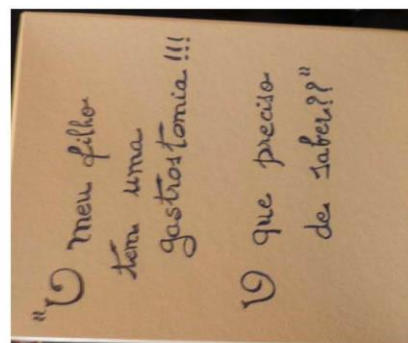 "O meu filho
tem uma
gastrostomia!!!
O que preciso
de saber??"